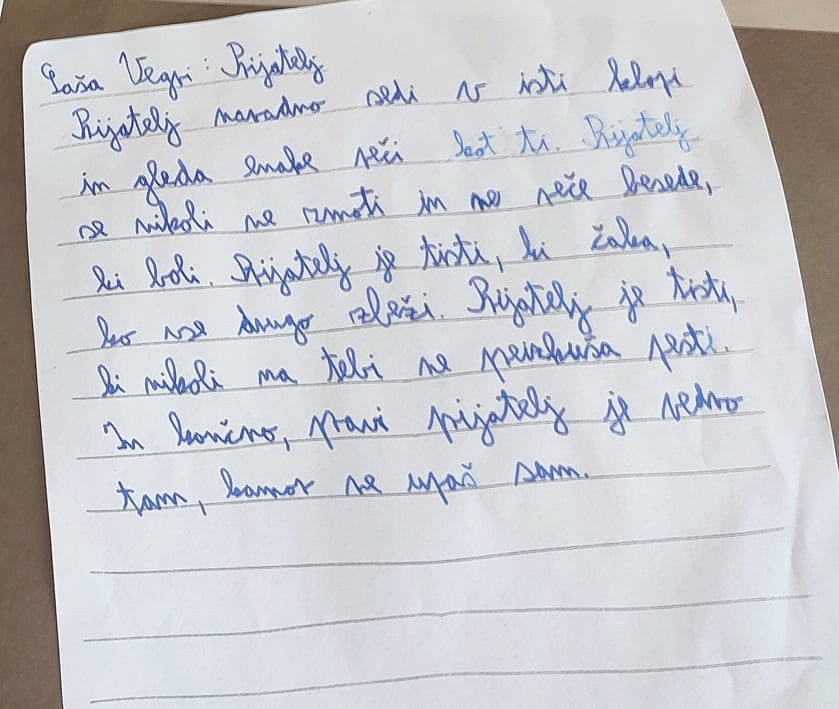 Saša Vegri: Prijatelj
Prijatelj navadno sedi v isti klopi
in gleda enake reči kot ti. Prijatelj
se nikoli ne zmoti in ne reče besede,
ki boli. Prijatelj je tisti, ki čaka,
ko vse drugo zbeži. Prijatelj je tisti,
ki nikoli na tebi ne preizkuša pesti.
In končno, pravi prijatelj je vedno
tam, kamor ne upaš sam.